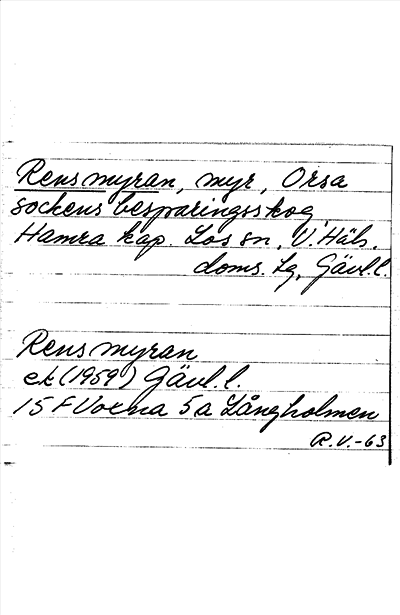 Rensmyran, myr, Orsa
sockens besparingsskog,
Hamra kap. Los sn, V. Häls.
doms. lg, Gävl. l.
Rensmyran
ek (1959) Gävl. l.
15 F Voxna 5a Långholmen
R.V.-63